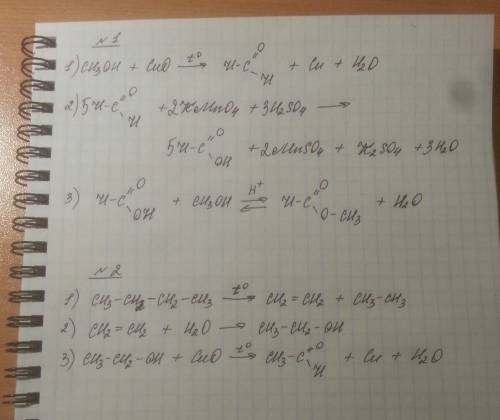 №1
1) CH3OH + CuO t° → H-C(=O)H + Cu + H2O
2) 5H-C(=O)H + 2KMnO4 + 3H2SO4 →
5H-C(=O)OH + 2MnSO4 + K2SO4 + 3H2O
3) H-C(=O)OH + CH3OH H+ ⇌ H-C(=O)O-CH3 + H2O
№2
1) CH3-CH2-CH2-CH3 t° → CH2=CH2 + CH3-CH3
2) CH2=CH2 + H2O → CH3-CH2-OH
3) CH3-CH2-OH + CuO t° → CH3-C(=O)H + Cu + H2O